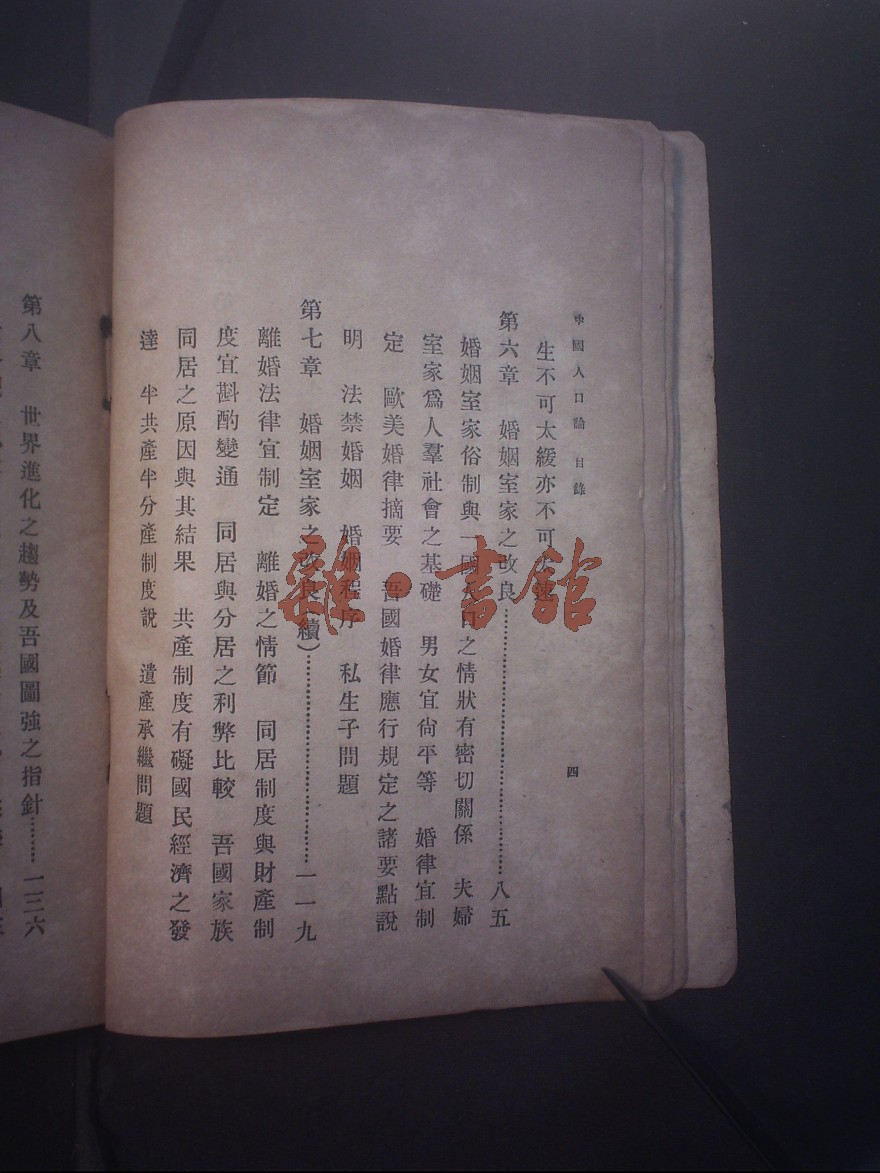 中國人口論 目錄
四
生不可太緩亦不可太速
第六章 婚姻室家之改良……………………八五
婚姻室家俗制與一國人口之情狀有密切關係 夫婦
室家爲人羣社會之基礎 男女宜尙平等 婚律宜制
定 歐美婚律摘要 吾國婚律應行規定之諸要點說
明 法禁婚姻 婚姻程序 私生子問題
第七章 婚姻室家之改良(續)……………………一一九
離婚法律宜制定 離婚之情節 同居制度與財產制
度宜斟酌變通 同居與分居之利弊比較 吾國家族
同居之原因與其結果 共產制度有礙國民經濟之發
達 半共產半分產制度說 遺產承繼問題
第八章 世界進化之趨勢及吾國圖強之指針………一三六
雜·書館